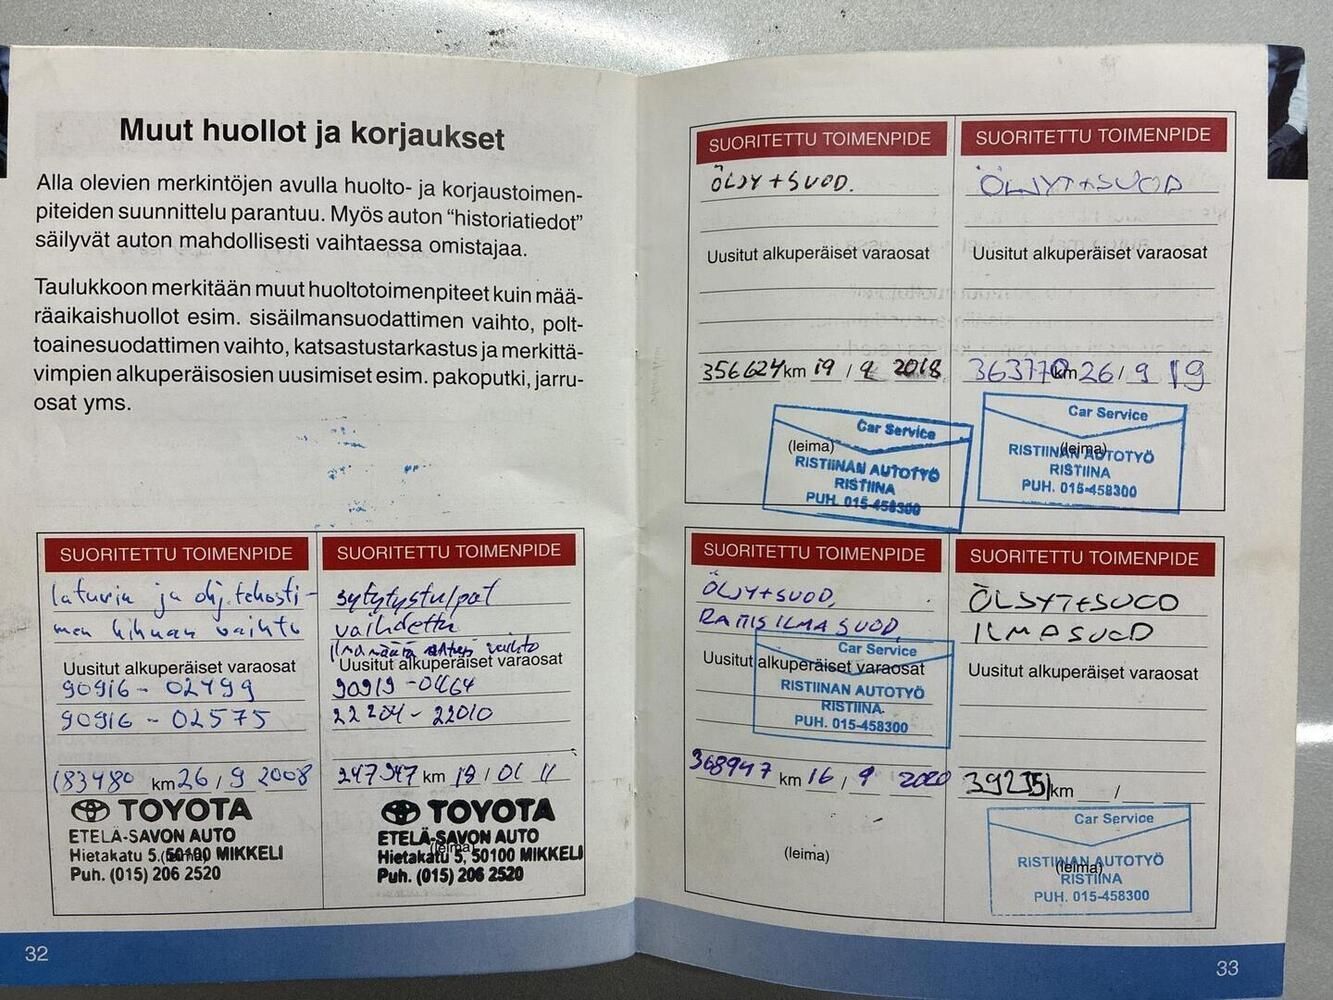 Muut huollot ja korjaukset
Alla olevien merkintöjen avulla huolto- ja korjaustoimen-
piteiden suunnittelu parantuu. Myös auton "historiatiedot"
säilyvät auton mahdollisesti vaihtaessa omistajaa.
Taulukkoon merkitään muut huoltotoimenpiteet kuin mää-
räaikaishuollot esim. sisäilmansuodattimen vaihto, polt-
toainesuodattimen vaihto, katsastustarkastus ja merkittä-
vimpien alkuperäisosien uusimiset esim. pakoputki, jarru-
osat yms.
SUORITETTU TOIMENPIDE
laturin ja ohj.tehosti-
men hihnan vaihto
Uusitut alkuperäiset varaosat
90916-02499
90916-02575
183480 km 26/9 2008
TOYOTA
ETELÄ-SAVON AUTO
Hietakatu 5, 50100 MIKKELI
(leima)
Puh. (015) 206 2520
SUORITETTU TOIMENPIDE
sytytystulpat
vaihdettu
ilmamäärä vaihto
Uusitut alkuperäiset varaosat
90919-0464
22204-22010
247947 km 18/01 11
TOYOTA
ETELÄ-SAVON AUTO
(leima)
Hietakatu 5, 50100 MIKKELI
Puh. (015) 206 2520
32
SUORITETTU TOIMENPIDE
ÖLJY+SUOD.
Uusitut alkuperäiset varaosat
356624 km 19/9 2018
Car Service
(leima)
RISTIINAN AUTOTYÖ
RISTIINA
PUH. 015-458300
SUORITETTU TOIMENPIDE
ÖLJYT+SUOD
Uusitut alkuperäiset varaosat
363770 km 26/9 19
Car Service
(leima)
RISTIINAN AUTOTYÖ
RISTIINA
PUH. 015-458300
SUORITETTU TOIMENPIDE
ÖLJY+SUOD,
RAITIS ILMA SUOD,
Uusitut alkuperäiset varaosat
Car Service
RISTIINAN AUTOTYÖ
RISTIINA
PUH. 015-458300
368947 km 16/9 2020
(leima)
SUORITETTU TOIMENPIDE
ÖLJYT+SUOD
ILMASUOD
Uusitut alkuperäiset varaosat
km /
Car Service
RISTIINAN AUTOTYÖ
(leima)
RISTIINA
PUH. 015-458300
33